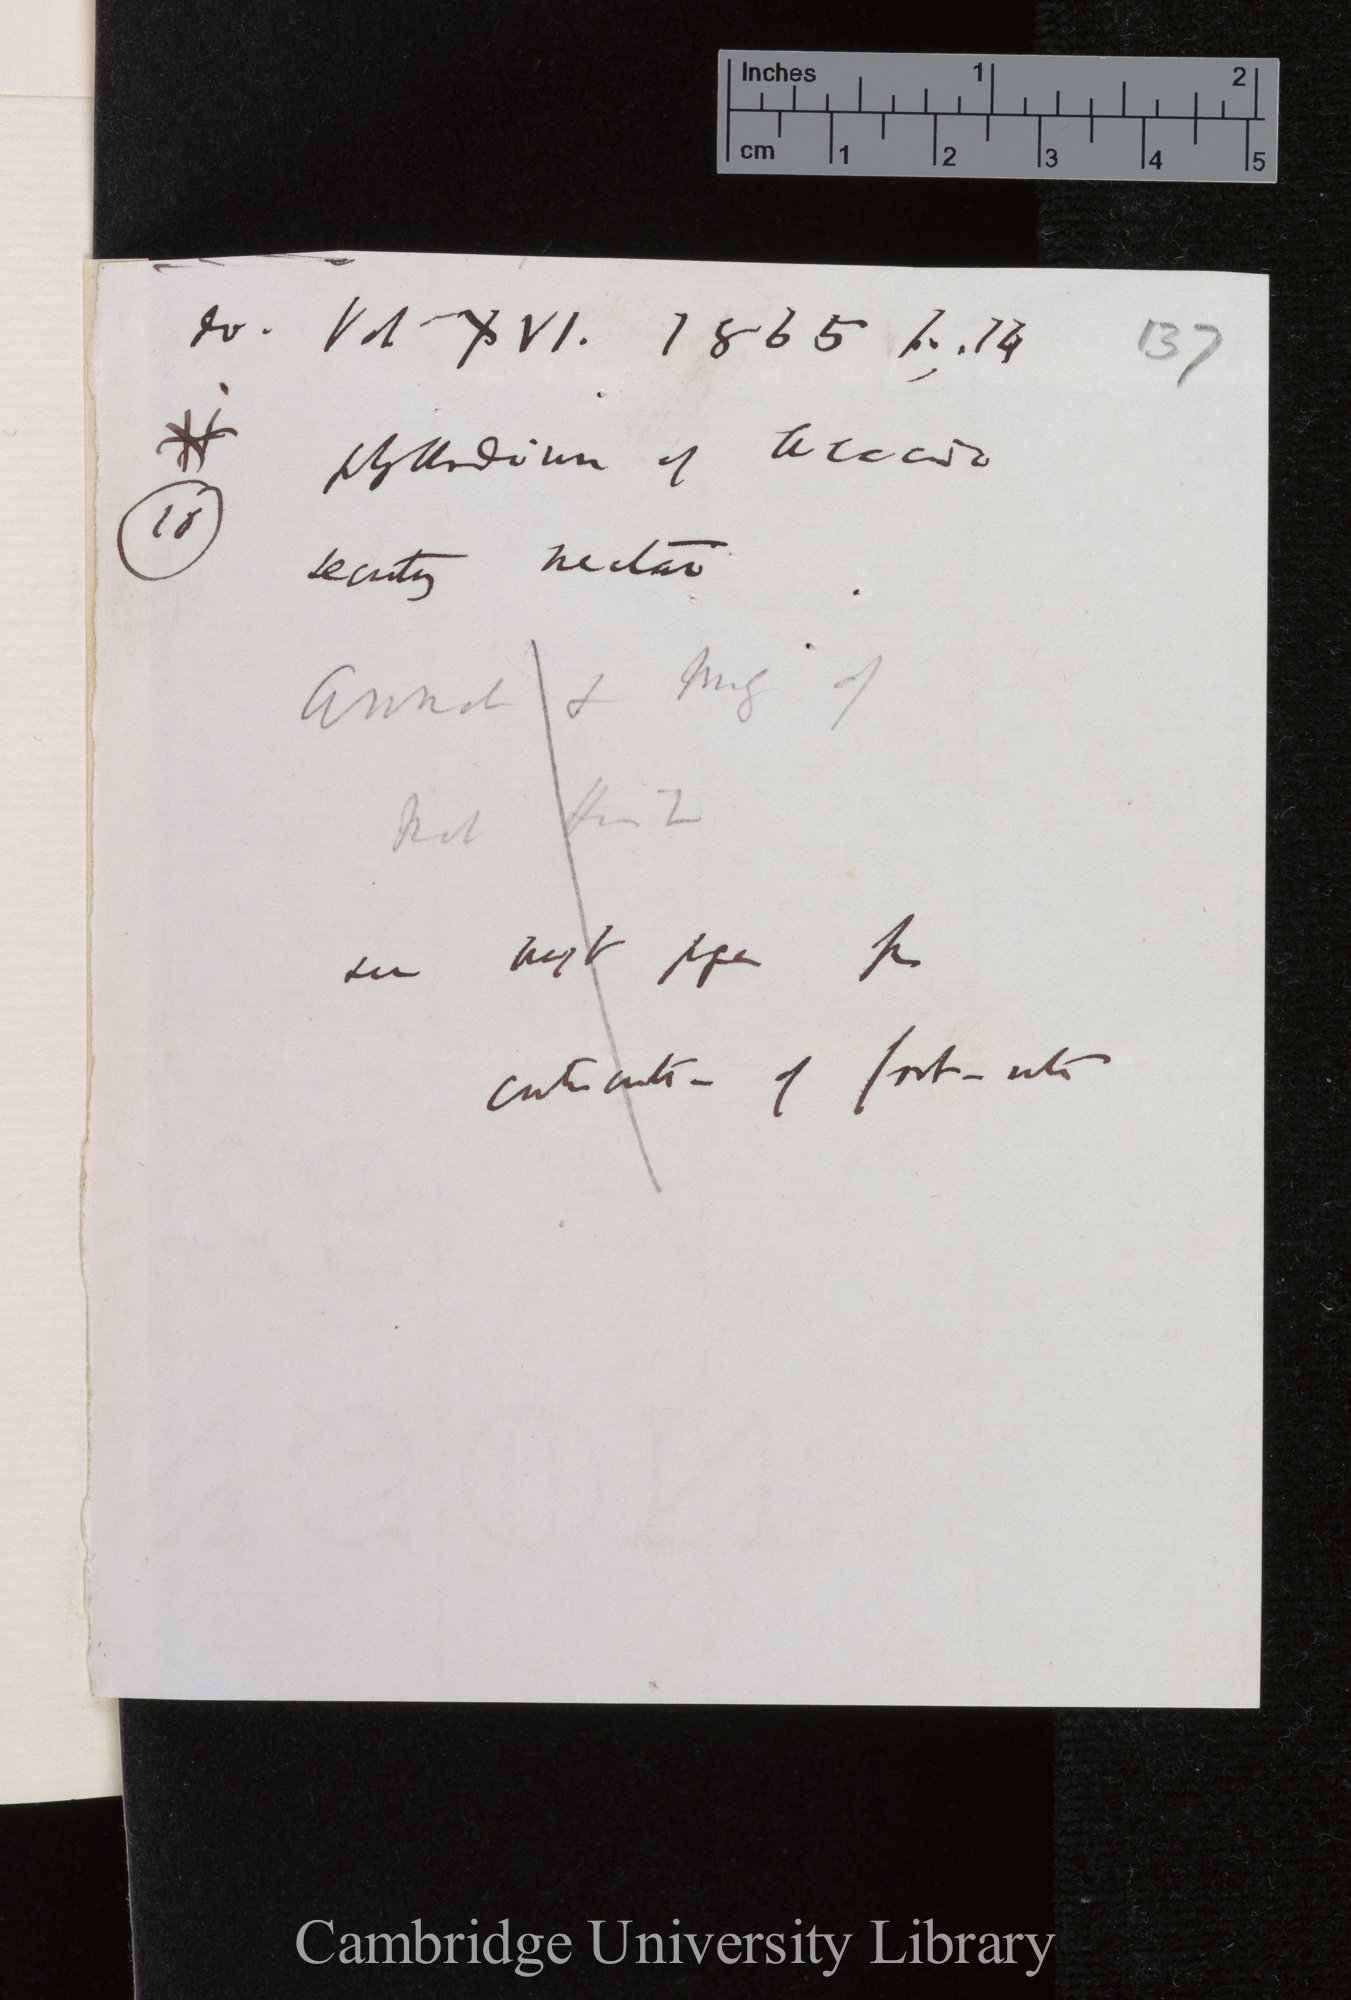 Inches 1 2
cm 1 2 3 4 5
do. Vol XVI. 1865 p. 14
137
phyllodium of Acacia
18
secretes nectar
Annals & Mag of
Nat Hist
see next page for
of foot-note
Cambridge University Library